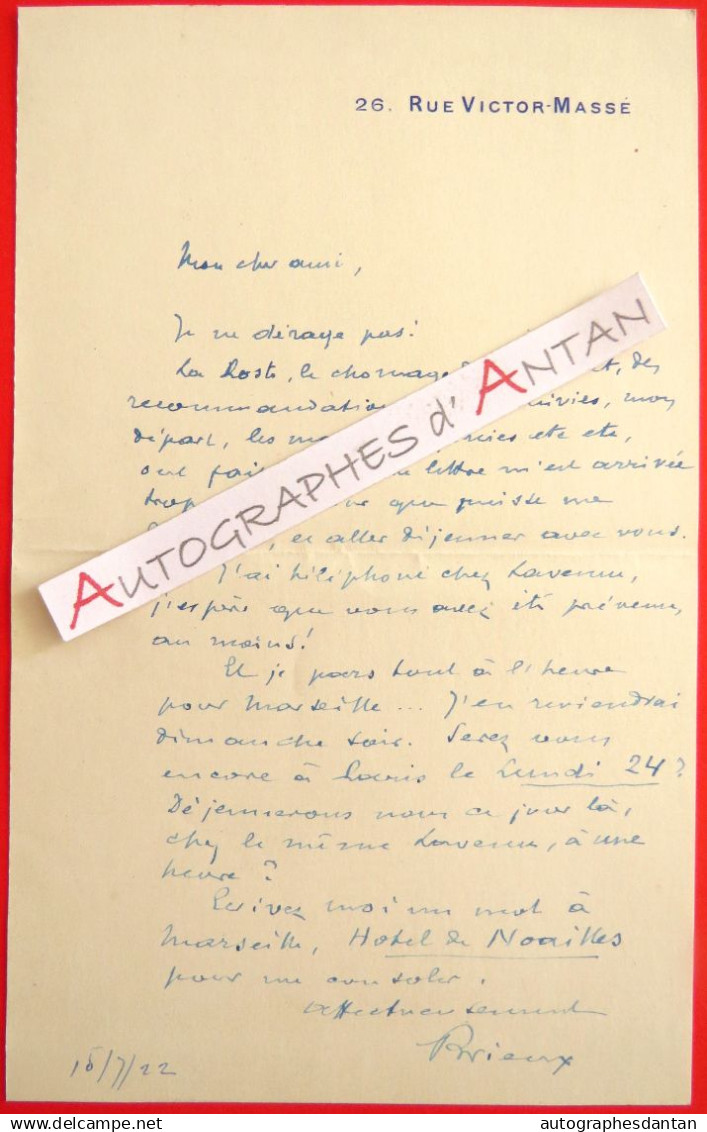 26. RUE VICTOR-MASSÉ
Mon cher ami,
Je ne dérage pas!
La Poste, le chomage des
recommandations mon
départ, les etc etc,
ont fai lettre m'est arrivée
trop que puisse me
et aller déjeuner avec vous.
J'ai téléphoné chez Lavenue,
j'espère que vous avez été prévenu,
au moins!
Et je pars tout à l'heure
pour Marseille... J'en reviendrai
dimanche soir. Serez vous
encore à Paris le Lundi 24?
Déjeunerons nous ce jour là,
chez le même Lavenue, à une
heure?
Ecrivez moi un mot à
Marseille, Hotel de Noailles
pour me consoler.
Affectueusement
Brieux
/7/22
AUTOGRAPHES d'ANTAN
© autographesdantan
autographesdantan